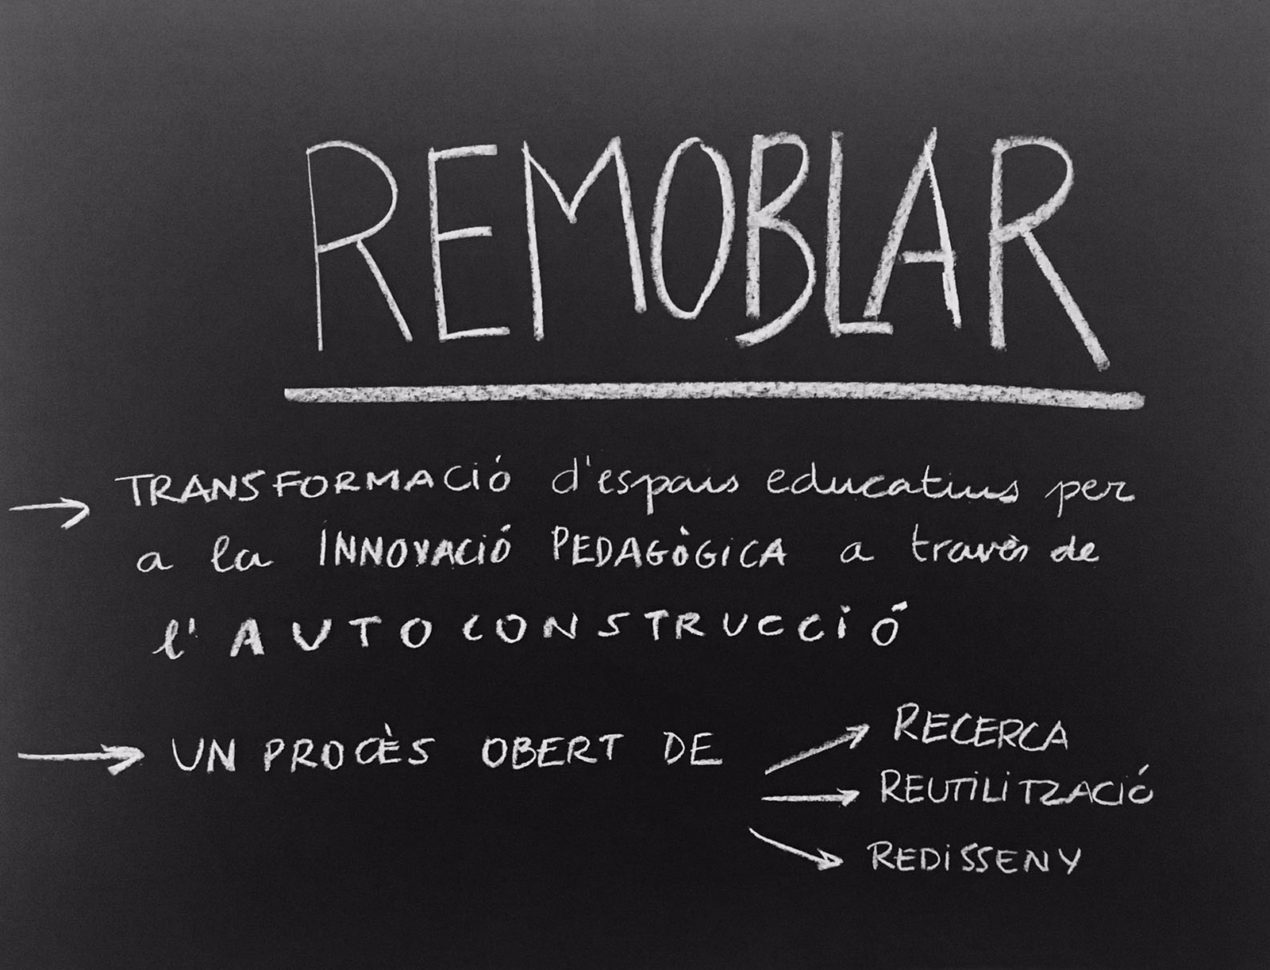 REMOBLAR
→ TRANSFORMACIÓ d'espais educatius per
a la INNOVACIÓ PEDAGÒGICA a través de
l'AUTOCONSTRUCCIÓ
→ UN PROCÈS OBERT DE
→ RECERCA
→ REUTILITZACIÓ
→ REDISSENY